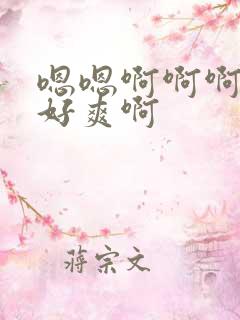 嗯嗯啊啊啊
好爽啊
蒋宗文